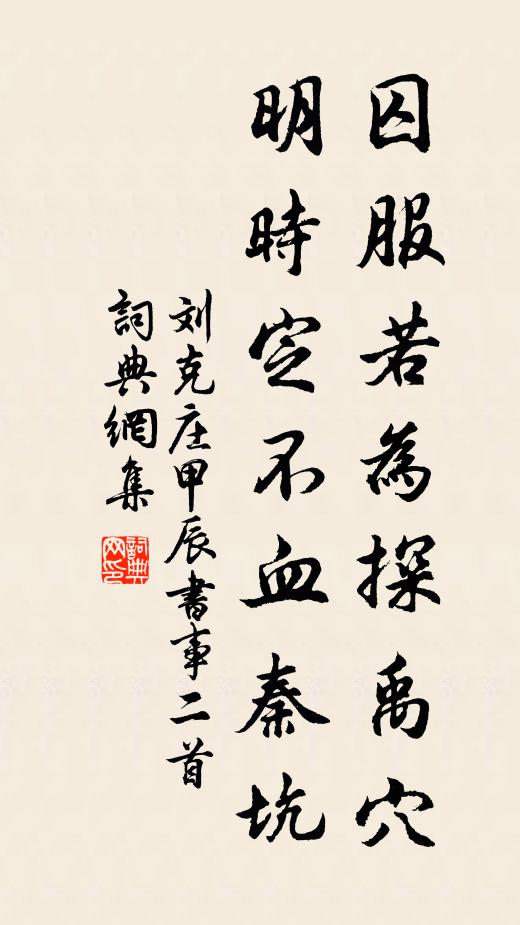 囚服若為探禹穴
明時定不血秦坑
刘克庄甲辰書事二首
詞典網集
詞典網印